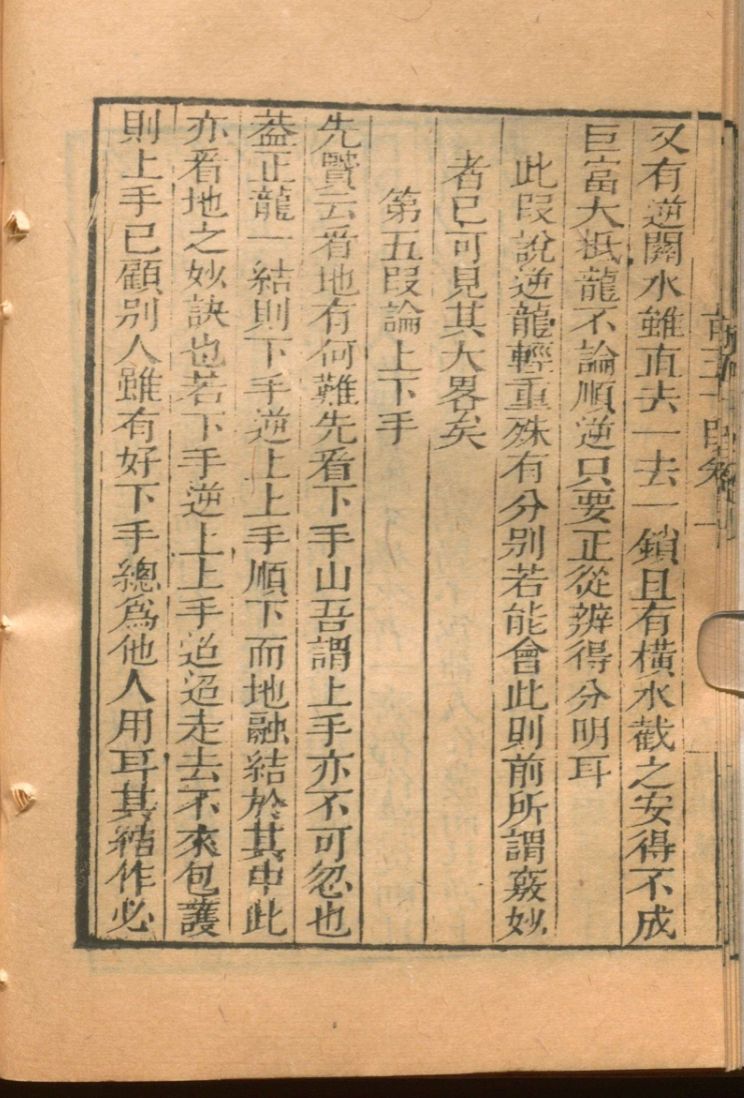 又有逆關水雖直去一去一鎖且有橫水截之安得不成
巨富大抵龍不論順逆只要正從辨得分明耳
此段說逆龍輕重殊有分别若能會此則前所謂竅妙
者已可見其大畧矣
第五段論上下手
先賢云看地有何難先看下手山吾謂上手亦不可忽也
葢正龍一結則下手逆上上手順下而地融結於其中此
亦看地之妙訣也若下手逆上上手迢迢走去不來包護
則上手已顧别人雖有好下手總爲他人用耳其結作必